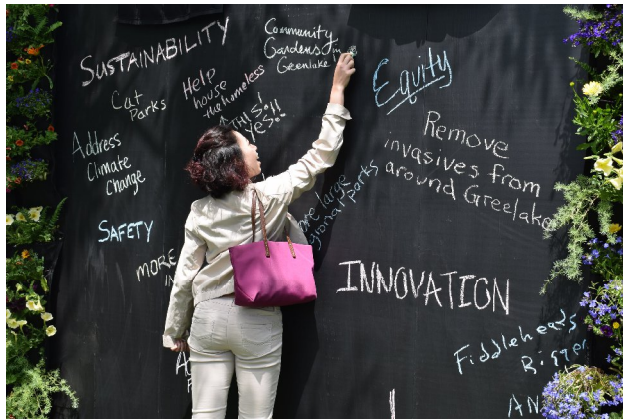 SUSTAINABILITY
Community
Gardens in
Greenlake
Equity
Cat
Parks
Help
house
the homeless
↑THIS!
YES!!
Address
Climate
Change
Remove
invasives from
around Greelake
large
parks
SAFETY
MORE
IN
INNOVATION
Fiddleheads
Bigger
AN